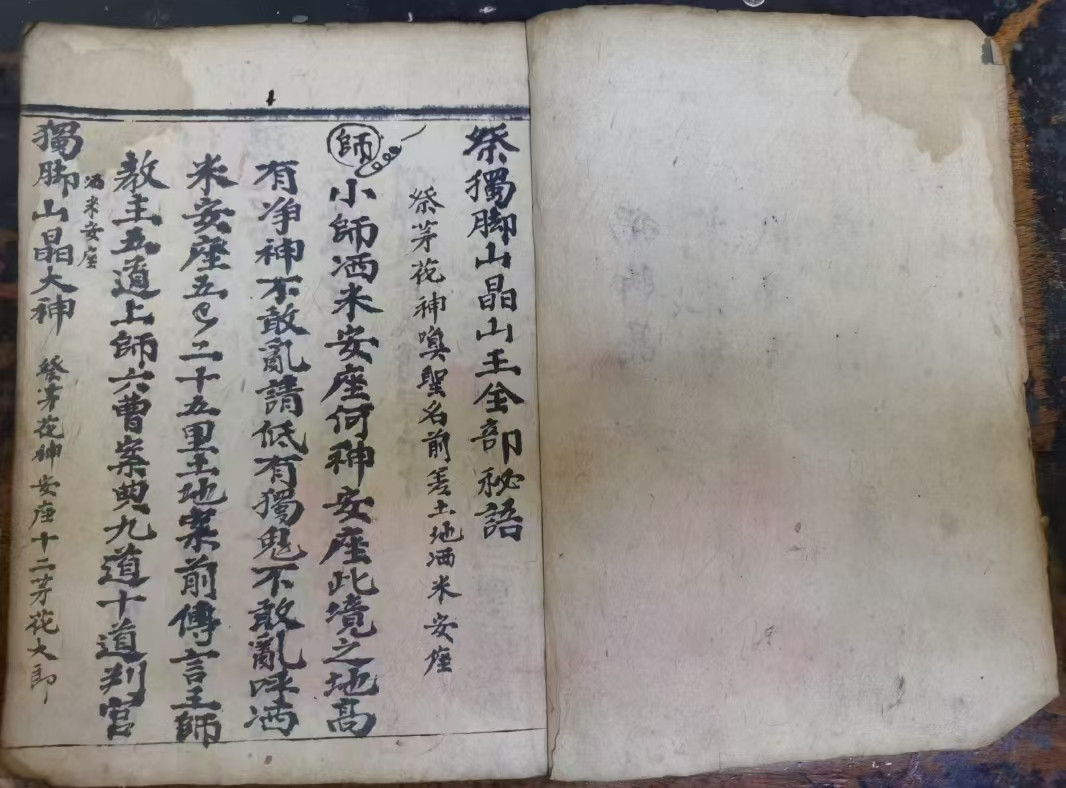 祭獨脚山晶山王全部秘語
祭茅花神嗅聖名前差土地洒米安座
師 小師洒米安座何神安座此境之地高
有净神不敢亂請低有獨鬼不敢亂呼洒
米安座五二十五里土地案前傳言王師
教主五道上師六曹案典九道十道判官
洒米安座
獨脚山晶大神 祭茅花神安座十二茅花大郎